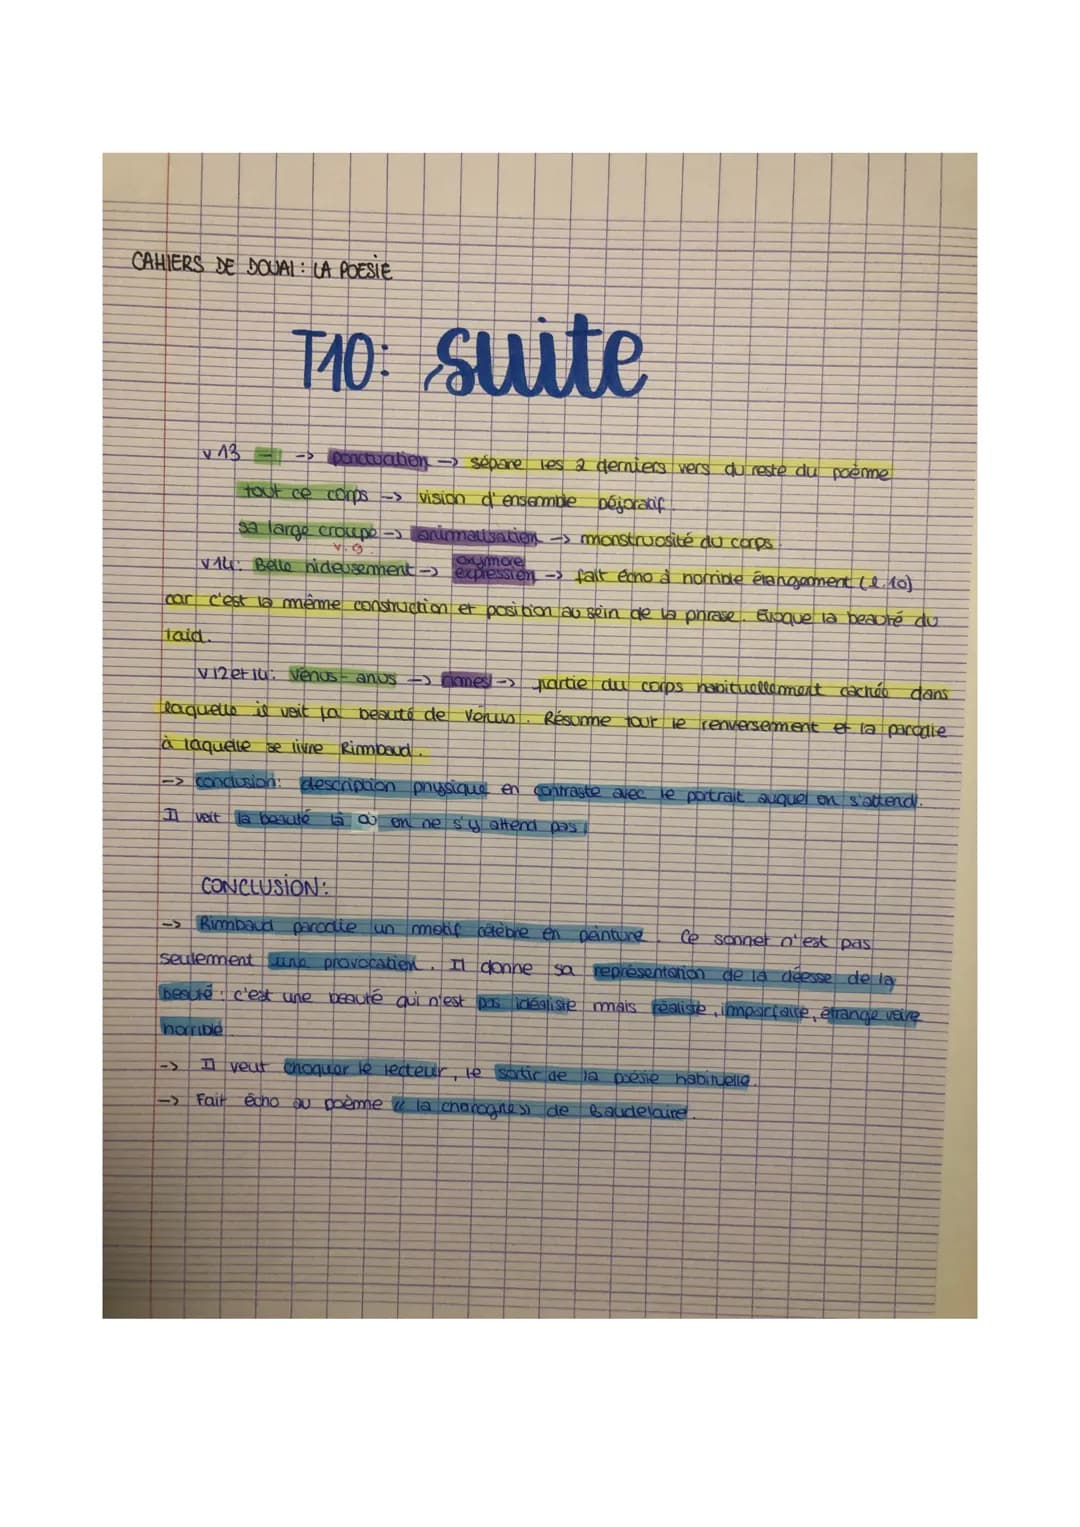 CAHIERS DE DOUAI : LA POESIE
T10: suite
v 13 - -> ponctuation -> sépare les 2 derniers vers du reste du poème
tout ce corps -> vision d'ensemble péjoratif.
sa large croupe -> animalisation -> monstruosité du corps.
v.9.
v 14: Belle hideusement -> oxymore expression -> fait écho à horrible étrangement (l.10)
car c'est la même construction et position au sein de la phrase. Evoque la beauté du
laid.
v 12 et 14: vénus - anus -> rimes -> partie du corps habituellement cachée dans
laquelle il voit la beauté de vénus. Résume tout le renversement et la parodie
à laquelle se livre Rimbaud.
-> conclusion: description physique en contraste avec le portrait auquel on s'attend.
Il voit la beauté là où on ne s'y attend pas !
CONCLUSION:
-> Rimbaud parodie un motif célèbre en peinture. Ce sonnet n'est pas
seulement une provocation. Il donne sa représentation de la déesse de la
beauté : c'est une beauté qui n'est pas idéaliste mais réaliste, imparfaite, étrange voire
horrible.
-> Il veut choquer le lecteur, le sortir de la poésie habituelle.
-> Fait écho au poème « la charogne » de Baudelaire.